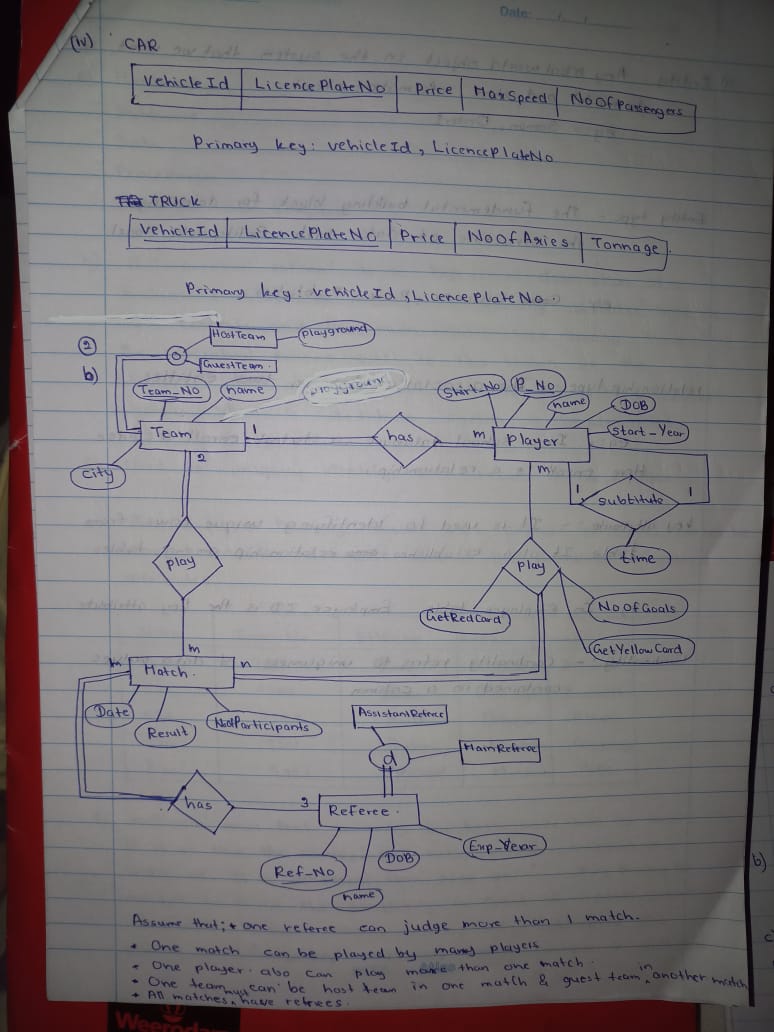 Date:
(iv) CAR
vehicle Id | Licence Plate No | Price | MaxSpeed | No Of Passengers
Primary key: vehicle Id, LicencePlateNo
TRUCK
vehicle Id | Licence Plate No | Price | No Of Axies | Tonnage
Primary key: vehicle Id, Licence Plate No.
② b)
HostTeam
playground
O
GuestTeam.
Team_No
name
Shirt_No
P_No
name
DOB
Start_Year
Team
1
has
m
Player
City
2
m
1
subtitute
1
time
play
play
GetRedCard
No Of Goals
GetYellowCard
m
m
Match.
n
Date
Result
NoofParticipants
AssistantReferee
d
MainReferee
has
3
Referee.
Ref_No
name
DOB
Exp_Year
Assume that; * one referee can judge more than 1 match.
* One match can be played by many players
* One player also can play more than one match.
* One team can be host team in one match & guest team in another match
* All matches have referees.
b)
c
Weerod